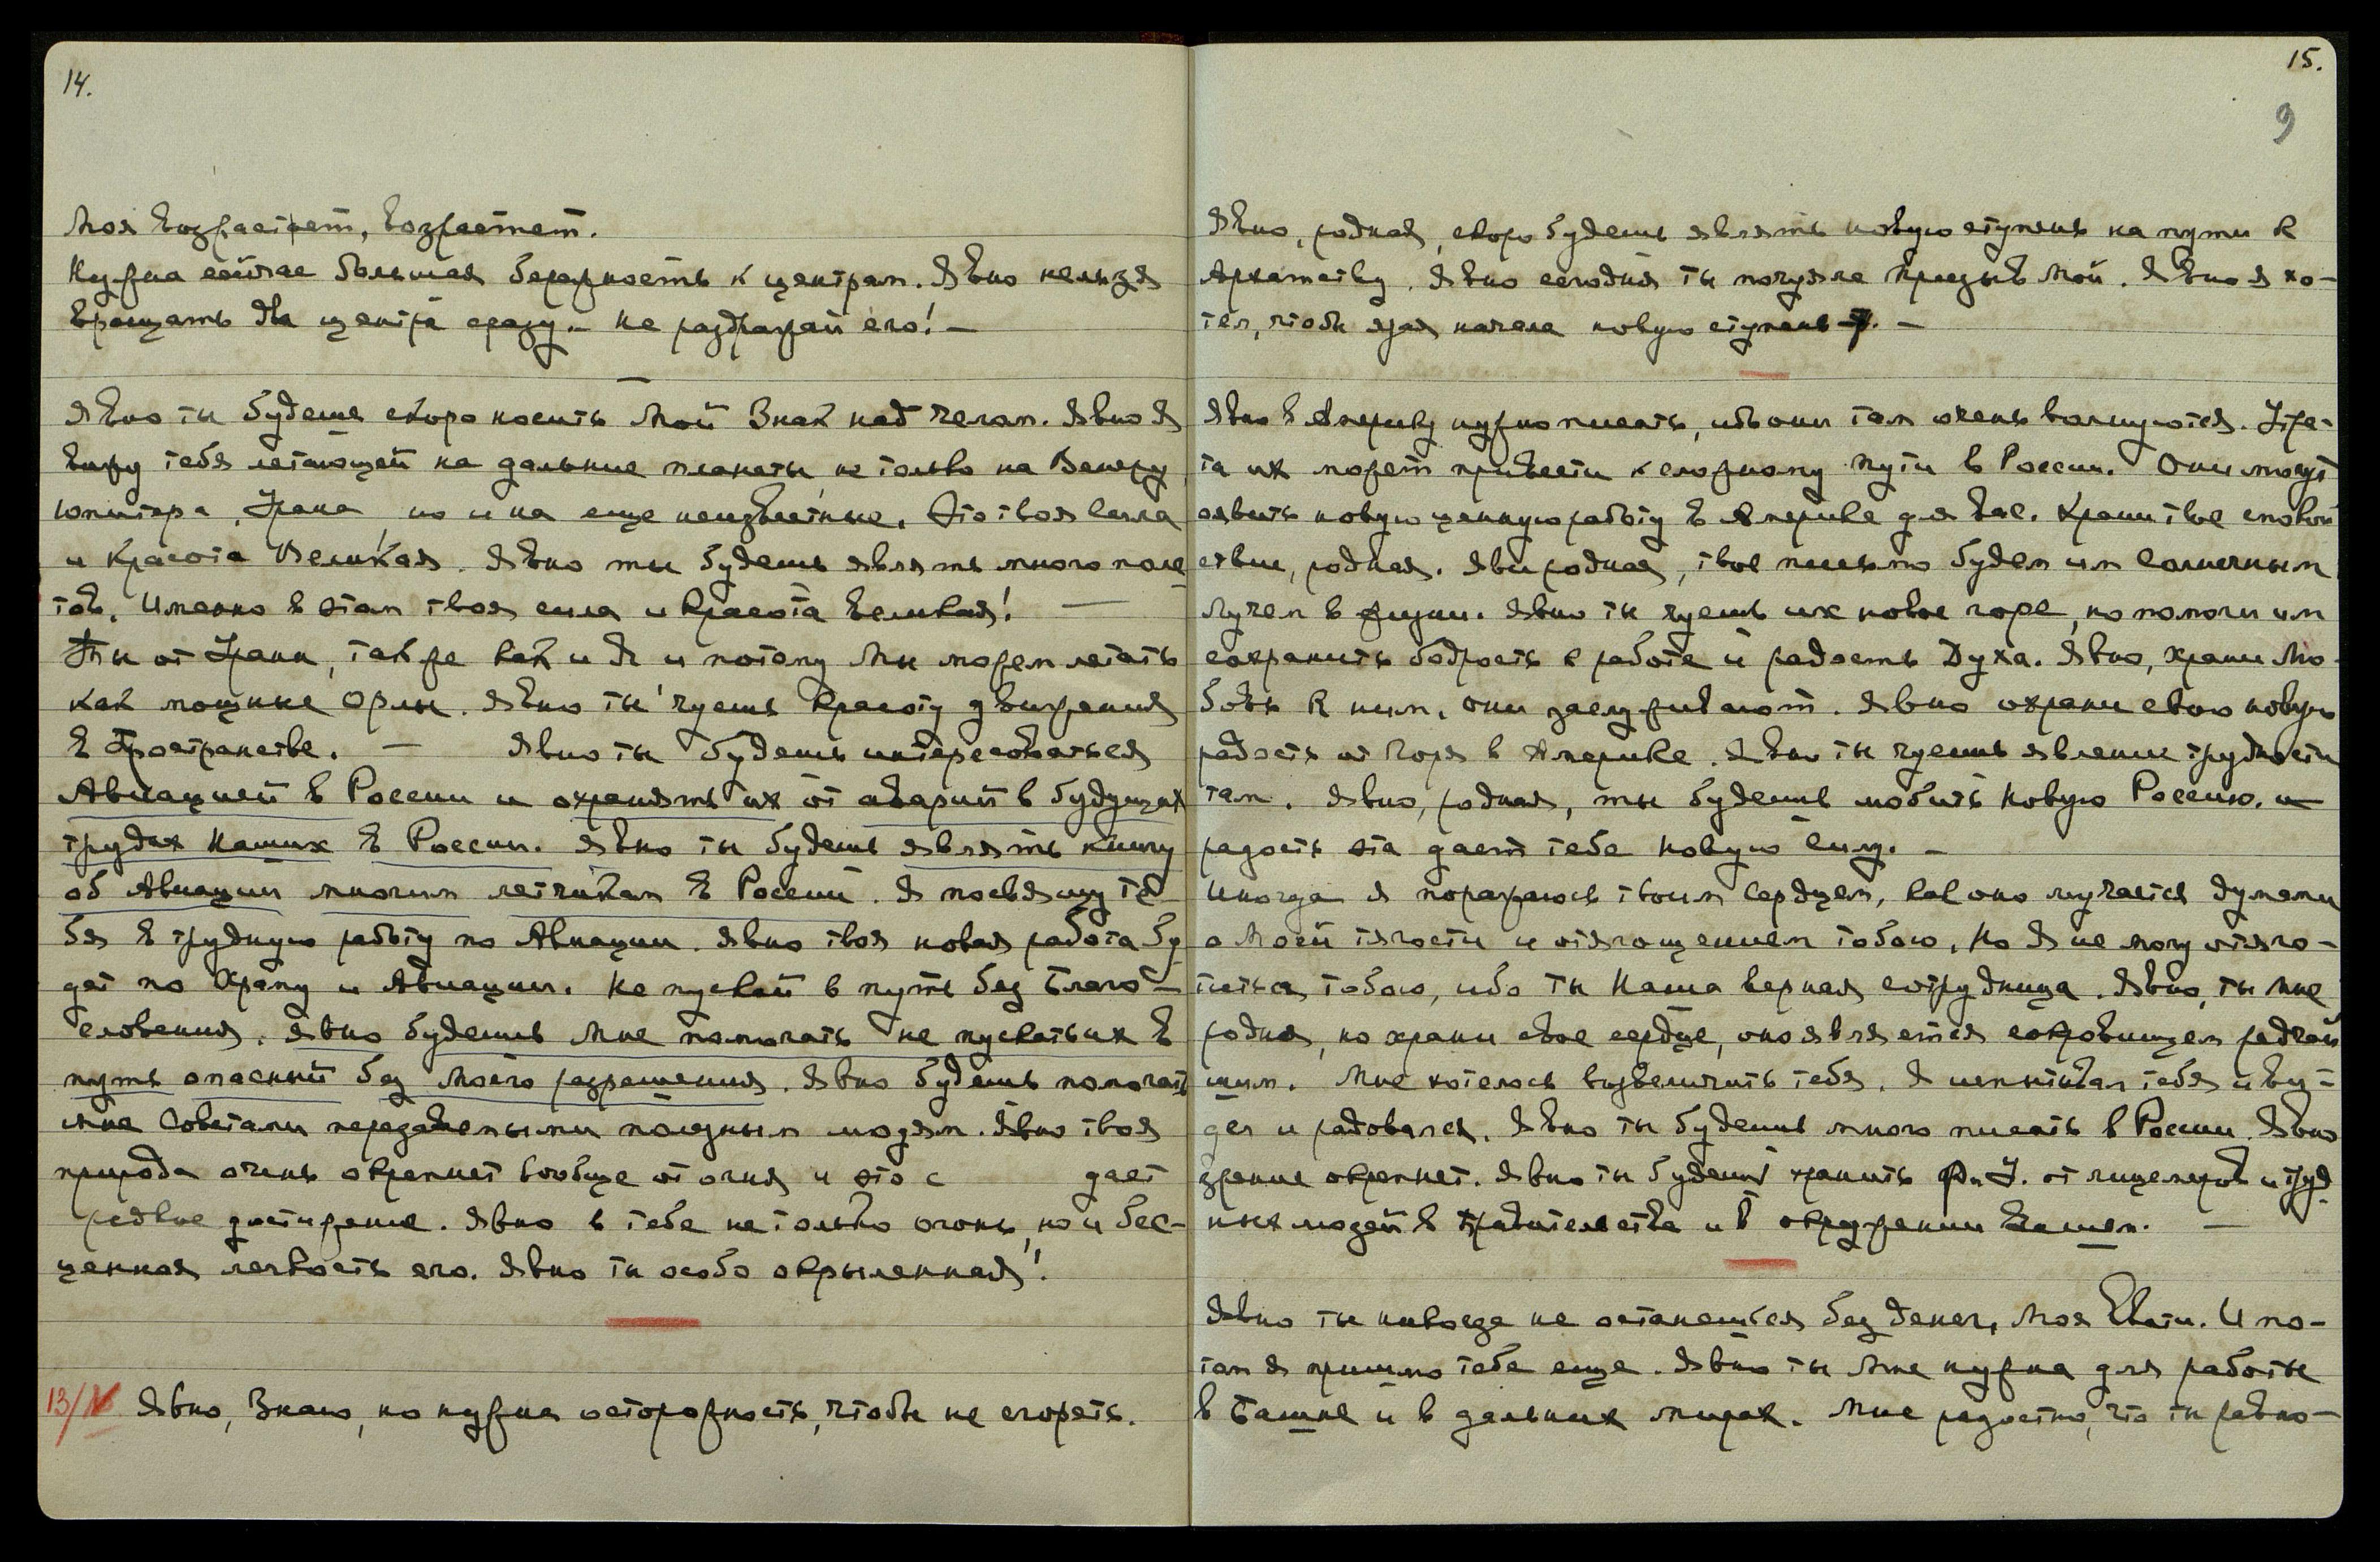 14.
Моя возрастет, возрастет.
Нужна сейчас большая бережность к центрам. Явно нельзя
вращать два центра сразу. – Не раздражай его! –
Явно ты будешь скоро носить Мой Знак над челом. Явно Я
вижу тебя летающей на дальние планеты не только на Венеру
Юпитера, Урана, но и на еще неизвестные. Это твоя сила
и Красота Великая. Явно ты будешь являть много поле-
тов. Именно в этом твоя сила и Красота великая! —
Ты от Урана, так же как и Я и потому Мы можем летать
как мощные орлы. Явно ты чуешь Красоту движения
в Пространстве. — Явно ты будешь интересоваться
Авиацией в России и охранять их от аварий в будущих
трудах Наших в России. Явно ты будешь являть книгу
об Авиации многим летчикам в России. Я посвящу те-
бя в трудную работу по Авиации. Явно твоя новая работа бу-
дет по Храму и Авиации. Не пускай в путь без Благо-
словения. Явно будешь Мне помогать не пускать их в
путь опасный без Моего разрешения. Явно будешь помогать
мне Советами передаваемыми полезным людям. Явно твоя
природа очень окрепнет вообще от огня и это с дает
редкое достижение. Явно в тебе не только огонь, но и бес-
ценная легкость его. Явно ты особо окрыленная!
13/IV Явно, Знаю, но нужна осторожность, чтобы не сгореть.
15.
9
Явно, родная, скоро будешь являть новую ступень на пути к
Архатству. Явно сегодня ты почуяла призыв Мой. Явно Я хо-
тел, чтобы ярая начала новую ступень. –
Явно в Америку нужно писать, ибо они там очень волнуются. Утра-
та их может привести к сложному пути в России. Они могут
явить новую ценную работу в Америке для вас. Храни твое спокой
ствие, родная. Яви родная, твое письмо будет им солнечным
лучем в жизни. Явно ты чуешь их новое горе, но помоги им
сохранить бодрость в работе и радость Духа. Явно, храни лю-
бовь к ним, они заслуживают. Явно охрани свою новую
радость от горя в Америке. Явно ты чуешь явление трудности
там. Явно, родная, ты будешь любить Новую Россию. и
радость эта дает тебе Новую Силу. –
Иногда Я поражаюсь твоим Сердцем, как оно мучается думами
о Моей тягости и отягощением тобою. Но Я не могу отяго-
титься тобою, ибо ты Наша верная сотрудница. Явно, ты Мне
родная, но храни свое сердце, оно является сокровищем редчай
шим. Мне хотелось возвеличить тебя. Я испытывал тебя и ви-
дел и радовался. Явно ты будешь много писать в России. Явно
зрение окрепнет. Явно ты будешь хранить Ф. У. от лицемеров и труд
ных людей в Правительстве и в окружении Вашем. —
Явно ты никогда не останешься без денег, Моя Свати. И по-
том Я пришлю тебе еще. Явно ты Мне нужна для работы
в Башне и в дальних мирах. Мне радостно, что ты равно-